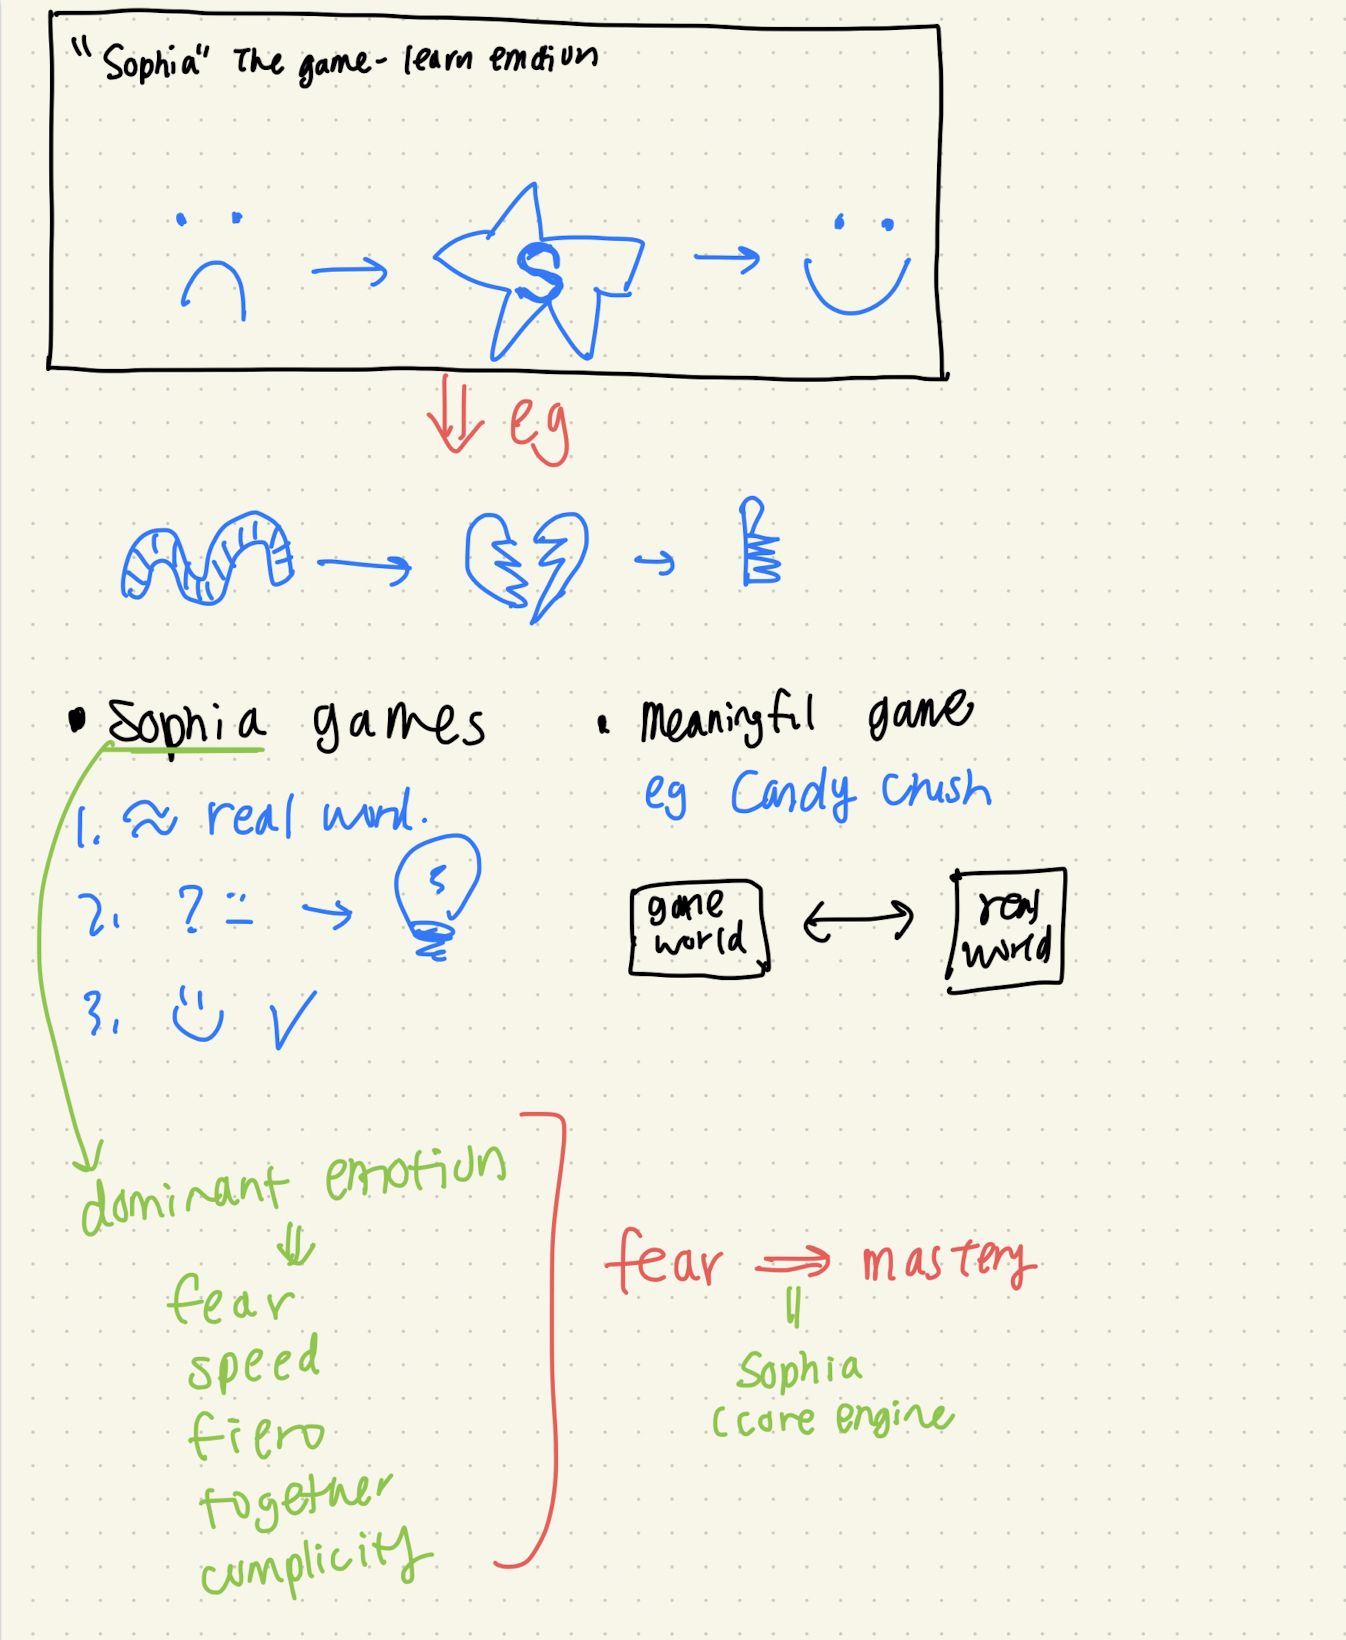 "Sophia" The game - learn emotion
S
eg
• Sophia games
1. ≈ real word.
2. ?
3.
• Meaningful game
eg Candy Crush
game world
real world
dominant emotion
fear
speed
fiero
together
complicity
fear ⇒ mastery
Sophia
(core engine